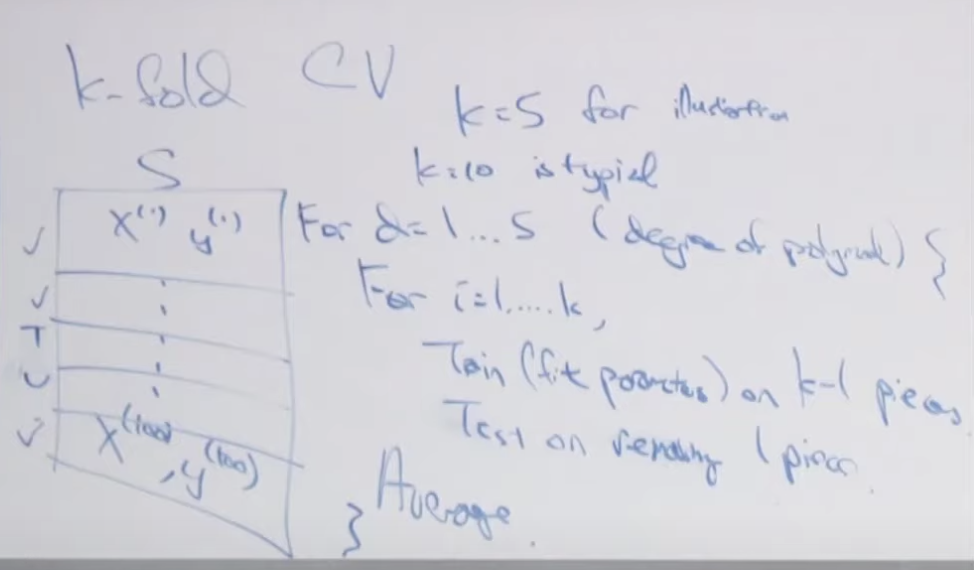 k-fold CV
k=5 for illustration
k=10 is typical
S
x^(1) y^(1)
For d=1...5 (degree of polynomial) {
For i=1,....k,
Train (fit parameters) on k-1 pieces
Test on remaining 1 piece.
x^(100), y^(100)
} Average.
✓
✓
T
✓